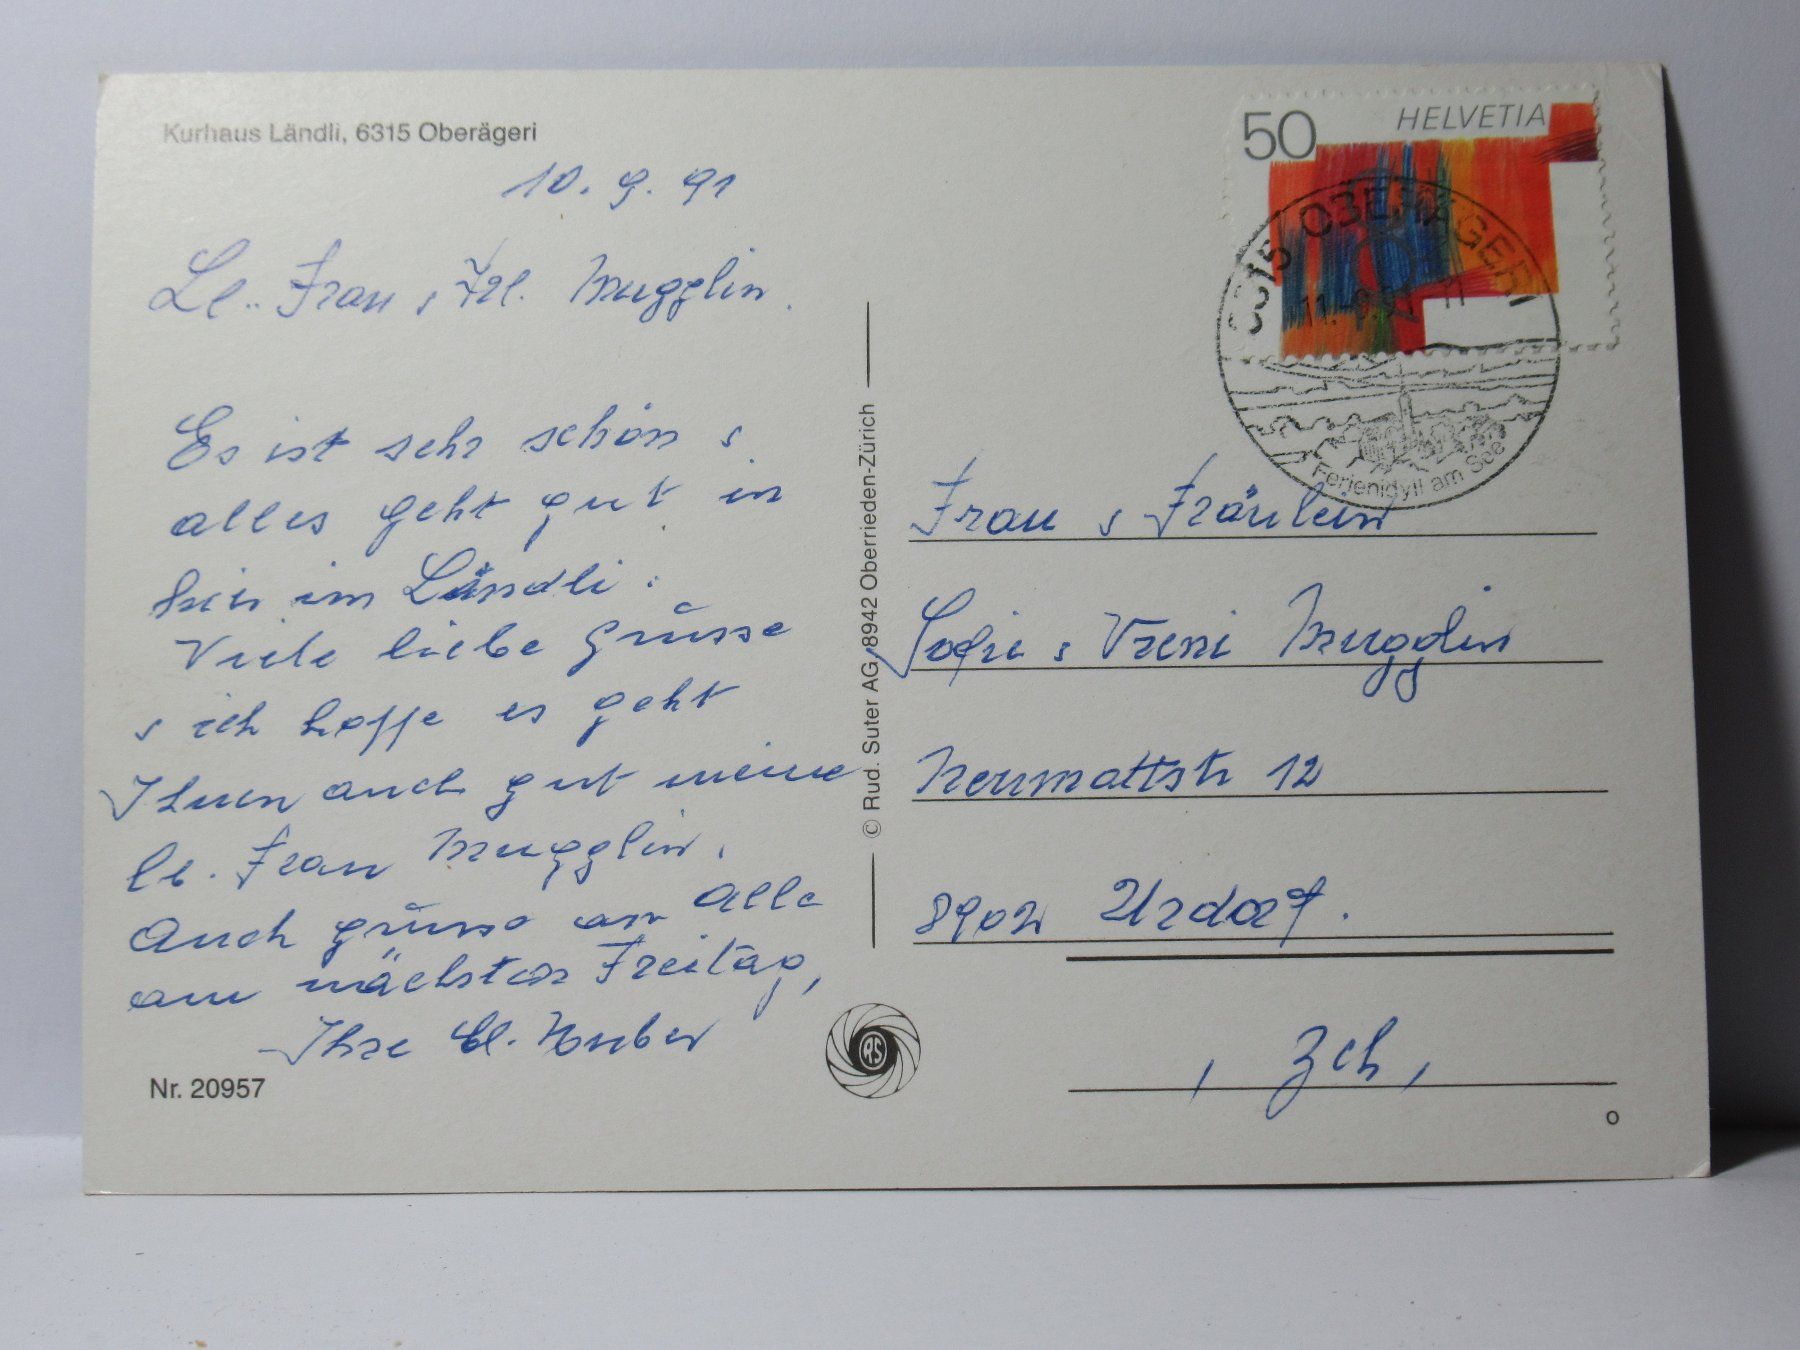 Kurhaus Ländli, 6315 Oberägeri
10. 9. 91
Lb. Frau s Frl. Mugglin.
Es ist sehr schön s
alles geht gut in
hier im Ländli.
Viele liebe Grüsse
s ich hoffe es geht
Ihnen auch gut meine
lb. Frau Mugglin.
Auch grüsse an alle
am nächsten Freitag,
Ihre El. Huber
Nr. 20957
© Rud. Suter AG, 8942 Oberrieden-Zürich
RS
50 HELVETIA
6315 OBERÄGERI
11.-9.91
Ferienidyll am See
Frau s Fräulein
Sofie s Vreni Mugglin
Neumattstr 12
8902 Urdorf.
, Zch,
o